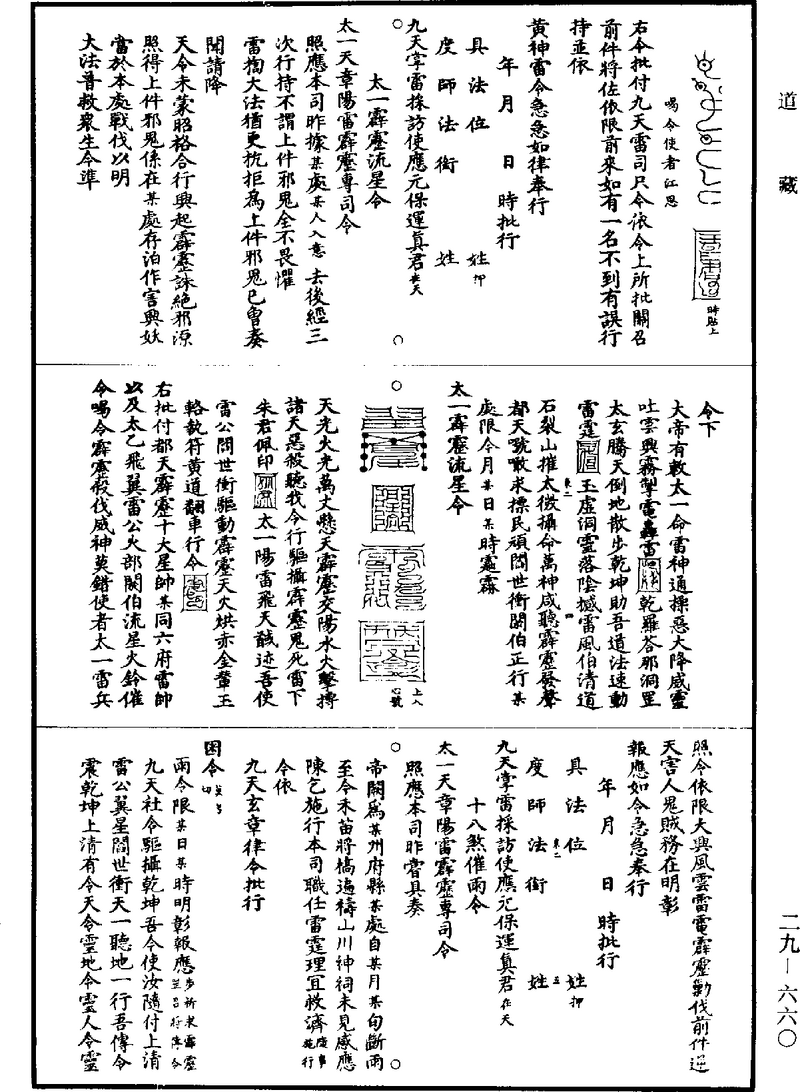 道藏
喝令使者江恩
時貼上
右令批付九天雷司只令依令上所批關召
前件將佐依限前來如有一名不到有誤行
持並依
黃神雷令急急如律奉行
年月　日　時批行
具法位　姓押
度師法銜　姓
九天掌雷採訪使應元保運真君在天
太一霹靂流星令
太一天章陽雷霹靂專司令
照應本司昨據某處某人入意去後經三
次行持不謂上件邪鬼全不畏懼
雷掏大法猶更抗拒為上件邪鬼已曾奏
聞請降
天令未蒙昭格合行興起霹靂誅絕邪源
照得上件邪鬼係在某處存泊作害興妖
當於本處戰伐以明
大法普救眾生令準
令下
大帝有敕太一命雷神通操惡大降威靈
吐雲興霧掣電轟雷乾羅荅那洞罡
太玄騰天倒地散步乾坤助吾道法速動
雷霆玉虛洞靈落陰撼雷風伯清道
石裂山摧太微攝命萬神咸聽霹靂發聲
都天號嗷求摽民頑閻世衝闕伯正行某
處限令月某日某時霆霖
太一霹靂流星令
上入心號
天光火光萬丈懸天霹靂交陽水火擊搏
諸天惡殺聽我令行驅攝霹靂鬼死雷下
朱君佩印太一陽雷飛天馘迹吾使
雷公閻世衝驅動霹靂天火烘赤金輦玉
輅執符黃道翻車行令
右批付都天霹靂十大星帥某同六府雷帥
以及太乙飛翼雷公火部閼伯流星火鈴催
令喝令霹靂殺伐威神莫錯使者太一雷兵
照令依限大興風雲雷電霹靂勦伐前件逆
天害人鬼賊務在明彰
報應如令急急奉行
年月　日　時批行
具法位　姓押
度師法銜　姓
九天掌雷採訪使應元保運真君在天
十八煞催雨令
太一天章陽雷霹靂專司令
照應本司昨嘗具奏
帝闕為某州府縣某處自某月某旬斷雨
至令禾苗將槁遍禱山川神祠未見感應
陳乞施行本司職任雷霆理宜救濟施行
令依
九天玄章律令批行
因令
雨令限某日某時明彰報應
九天社令驅攝乾坤吾令使汝隨付上清
雷公翼星閻世衝天一聽地一行吾傳令
震乾坤上清有令天令靈地令靈人令靈
二九—六六〇